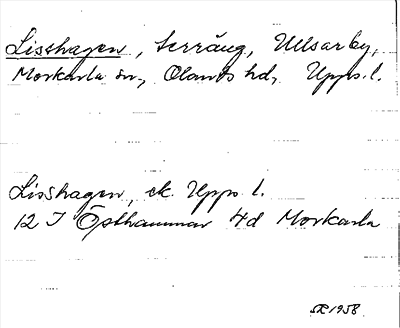 Lisshagen, terräng, Ullsarby,
Morkarla sn, Olands hd, Upps. l.
Lisshagen, ek. Upps l.
12 I Östhammar 4d Morkarla
1958